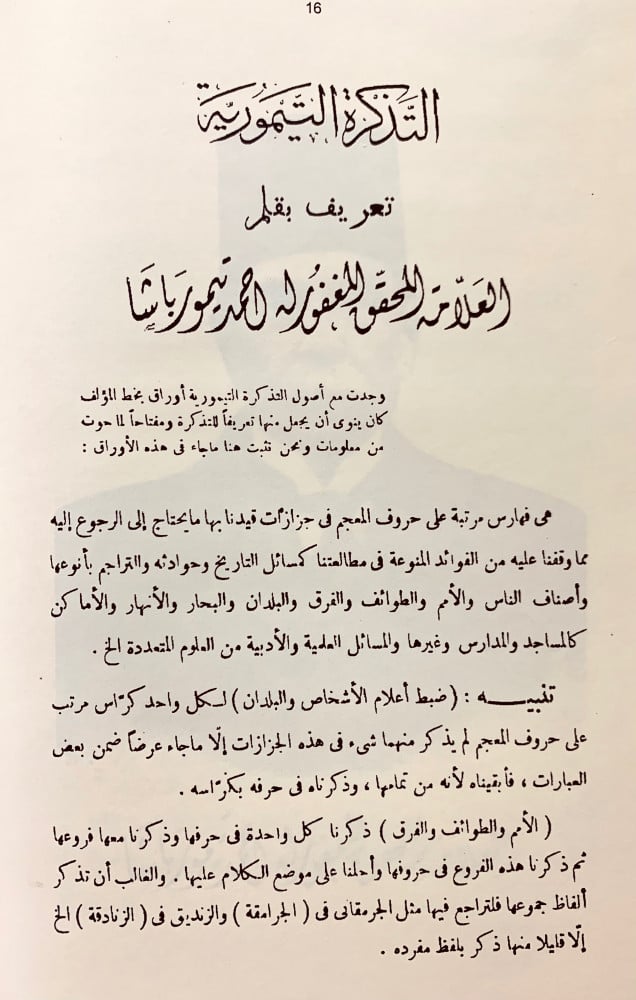 16
التَّذكرة التَّيمُوريَّة
تعريف بقلم
العَلاّمة المحقق المغفُور له احمد تيمور باشَا
وجدت مع أصول التذكرة التيمورية أوراق بخط المؤلف
كان ينوى أن يجعل منها تعريفاً للتذكرة ومفتاحاً لما حوت
من معلومات ونحن نثبت هنا ماجاء فى هذه الأوراق :
هى فهارس مرتبة على حروف المعجم فى جزازات قيدنا بها مايحتاج إلى الرجوع إليه
مما وقفنا عليه من الفوائد المنوعة فى مطالعتنا كمسائل التاريخ وحوادثه والتراجم بأنوعها
وأصناف الناس والأمم والطوائف والفرق والبلدان والبحار والأنهار والأماكن
كالمساجد والمدارس وغيرها والمسائل العلمية والأدبية من العلوم المتعددة الخ .
تنبيـــه : ( ضبط أعلام الأشخاص والبلدان ) لـكل واحد كرّاس مرتب
على حروف المعجم لم يذكر منهما شىء فى هذه الجزازات إلّا ماجاء عرضاً ضمن بعض
العبارات ، فأبقيناه لأنه من تمامها ، وذكرناه فى حرفه بكرّاسه .
( الأمم والطوائف والفرق ) ذكرنا كل واحدة فى حرفها وذكرنا معها فروعها
ثم ذكرنا هذه الفروع فى حروفها وأحلنا على موضع الـكلام عليها . والغالب أن تذكر
ألفاظ جموعها فلتراجع فيها مثل الجرمقانى فى ( الجرامقة ) والزنديق فى ( الزنادقة ) الخ
إلّا قليلا منها ذكر بلفظ مفرده .